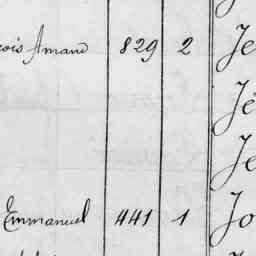 çois Amand 829 2 Je
Jé
Je
Emmanuel 441 1 Jo